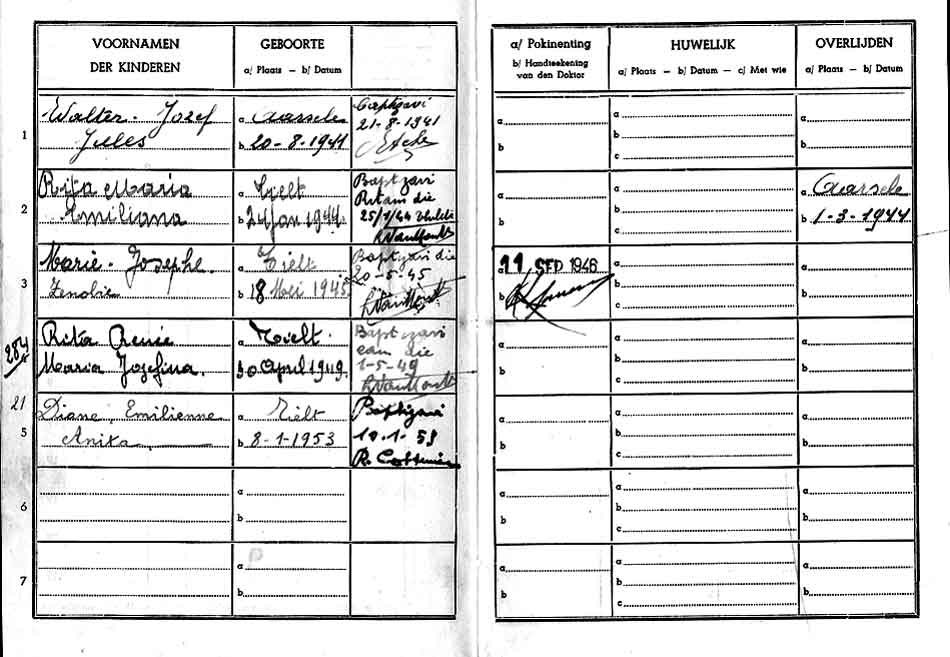 VOORNAMEN
DER KINDEREN
GEBOORTE
a/ Plaats — b/ Datum
1
Walter - Jozef
Jules
a Aarsele
b 20-8-1941
Baptizavi
21-8-1941
2
Rita Maria
Emiliana
a Tielt
b 24 Jan 1944.
Baptizavi
Ritam die
25/1/44
3
Marie - Josephe.
Zenobie
a Tielt
b 18 Mei 1945
Baptizavi die
20-5-45
284
Rita Renié
Maria Jozefina.
a Tielt.
30 April 1949.
Baptizavi
eam die
1-5-49
21
5
Diane, Emilienne
Anita
a Tielt
b 8-1-1953
Baptizavi
10-1-53
6
a
b
7
a
b
a/ Pokinenting
b/ Handteekening
van den Doktor
HUWELIJK
a/ Plaats — b/ Datum — c/ Met wie
OVERLIJDEN
a/ Plaats — b/ Datum
a
b
a
b
c
a
b
a
b
a
b
c
a Aarsele
b 1-3-1944
a 11 SEP 1946
b
a
b
c
a
b
a
b
a
b
c
a
b
a
b
a
b
c
a
b
a
b
a
b
c
a
b
a
b
a
b
c
a
b